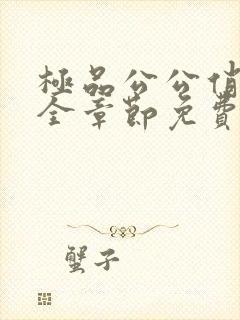 極品公公俏
全章節免費
蟹子